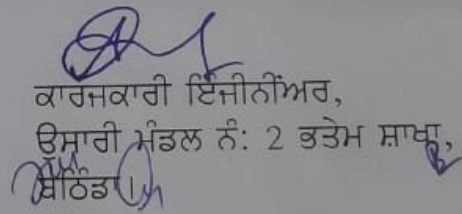 ਕਾਰਜਕਾਰੀ ਇੰਜੀਨੀਅਰ,
ਉਸਾਰੀ ਮੰਡਲ ਨੰ: 2 ਭਤੇਮ ਸ਼ਾਖਾ,
ਬਠਿੰਡਾ।